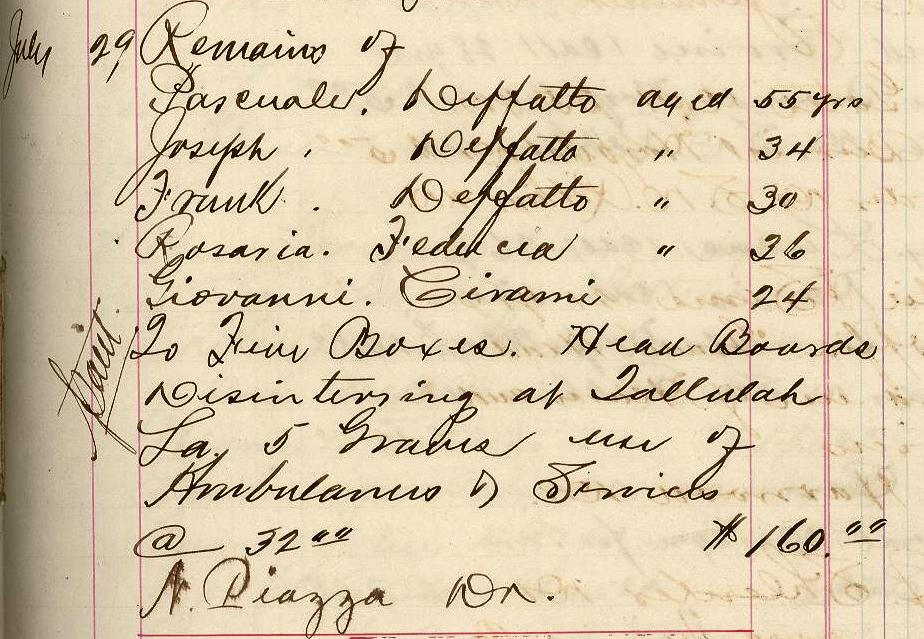 July 29 Remains of
Pascuale. Deffatto aged 55 yrs
Joseph . Deffatto " 34
Frank . Deffatto " 30
Rosaria. Federcia " 36
Giovanni. Cirami 24
Paid. To Five Boxes. Head Boards
Disinterring at Tallulah
La. 5 Graves use of
Ambulances & Services
@ 32 00 $160.00
N. Piazza Dr.